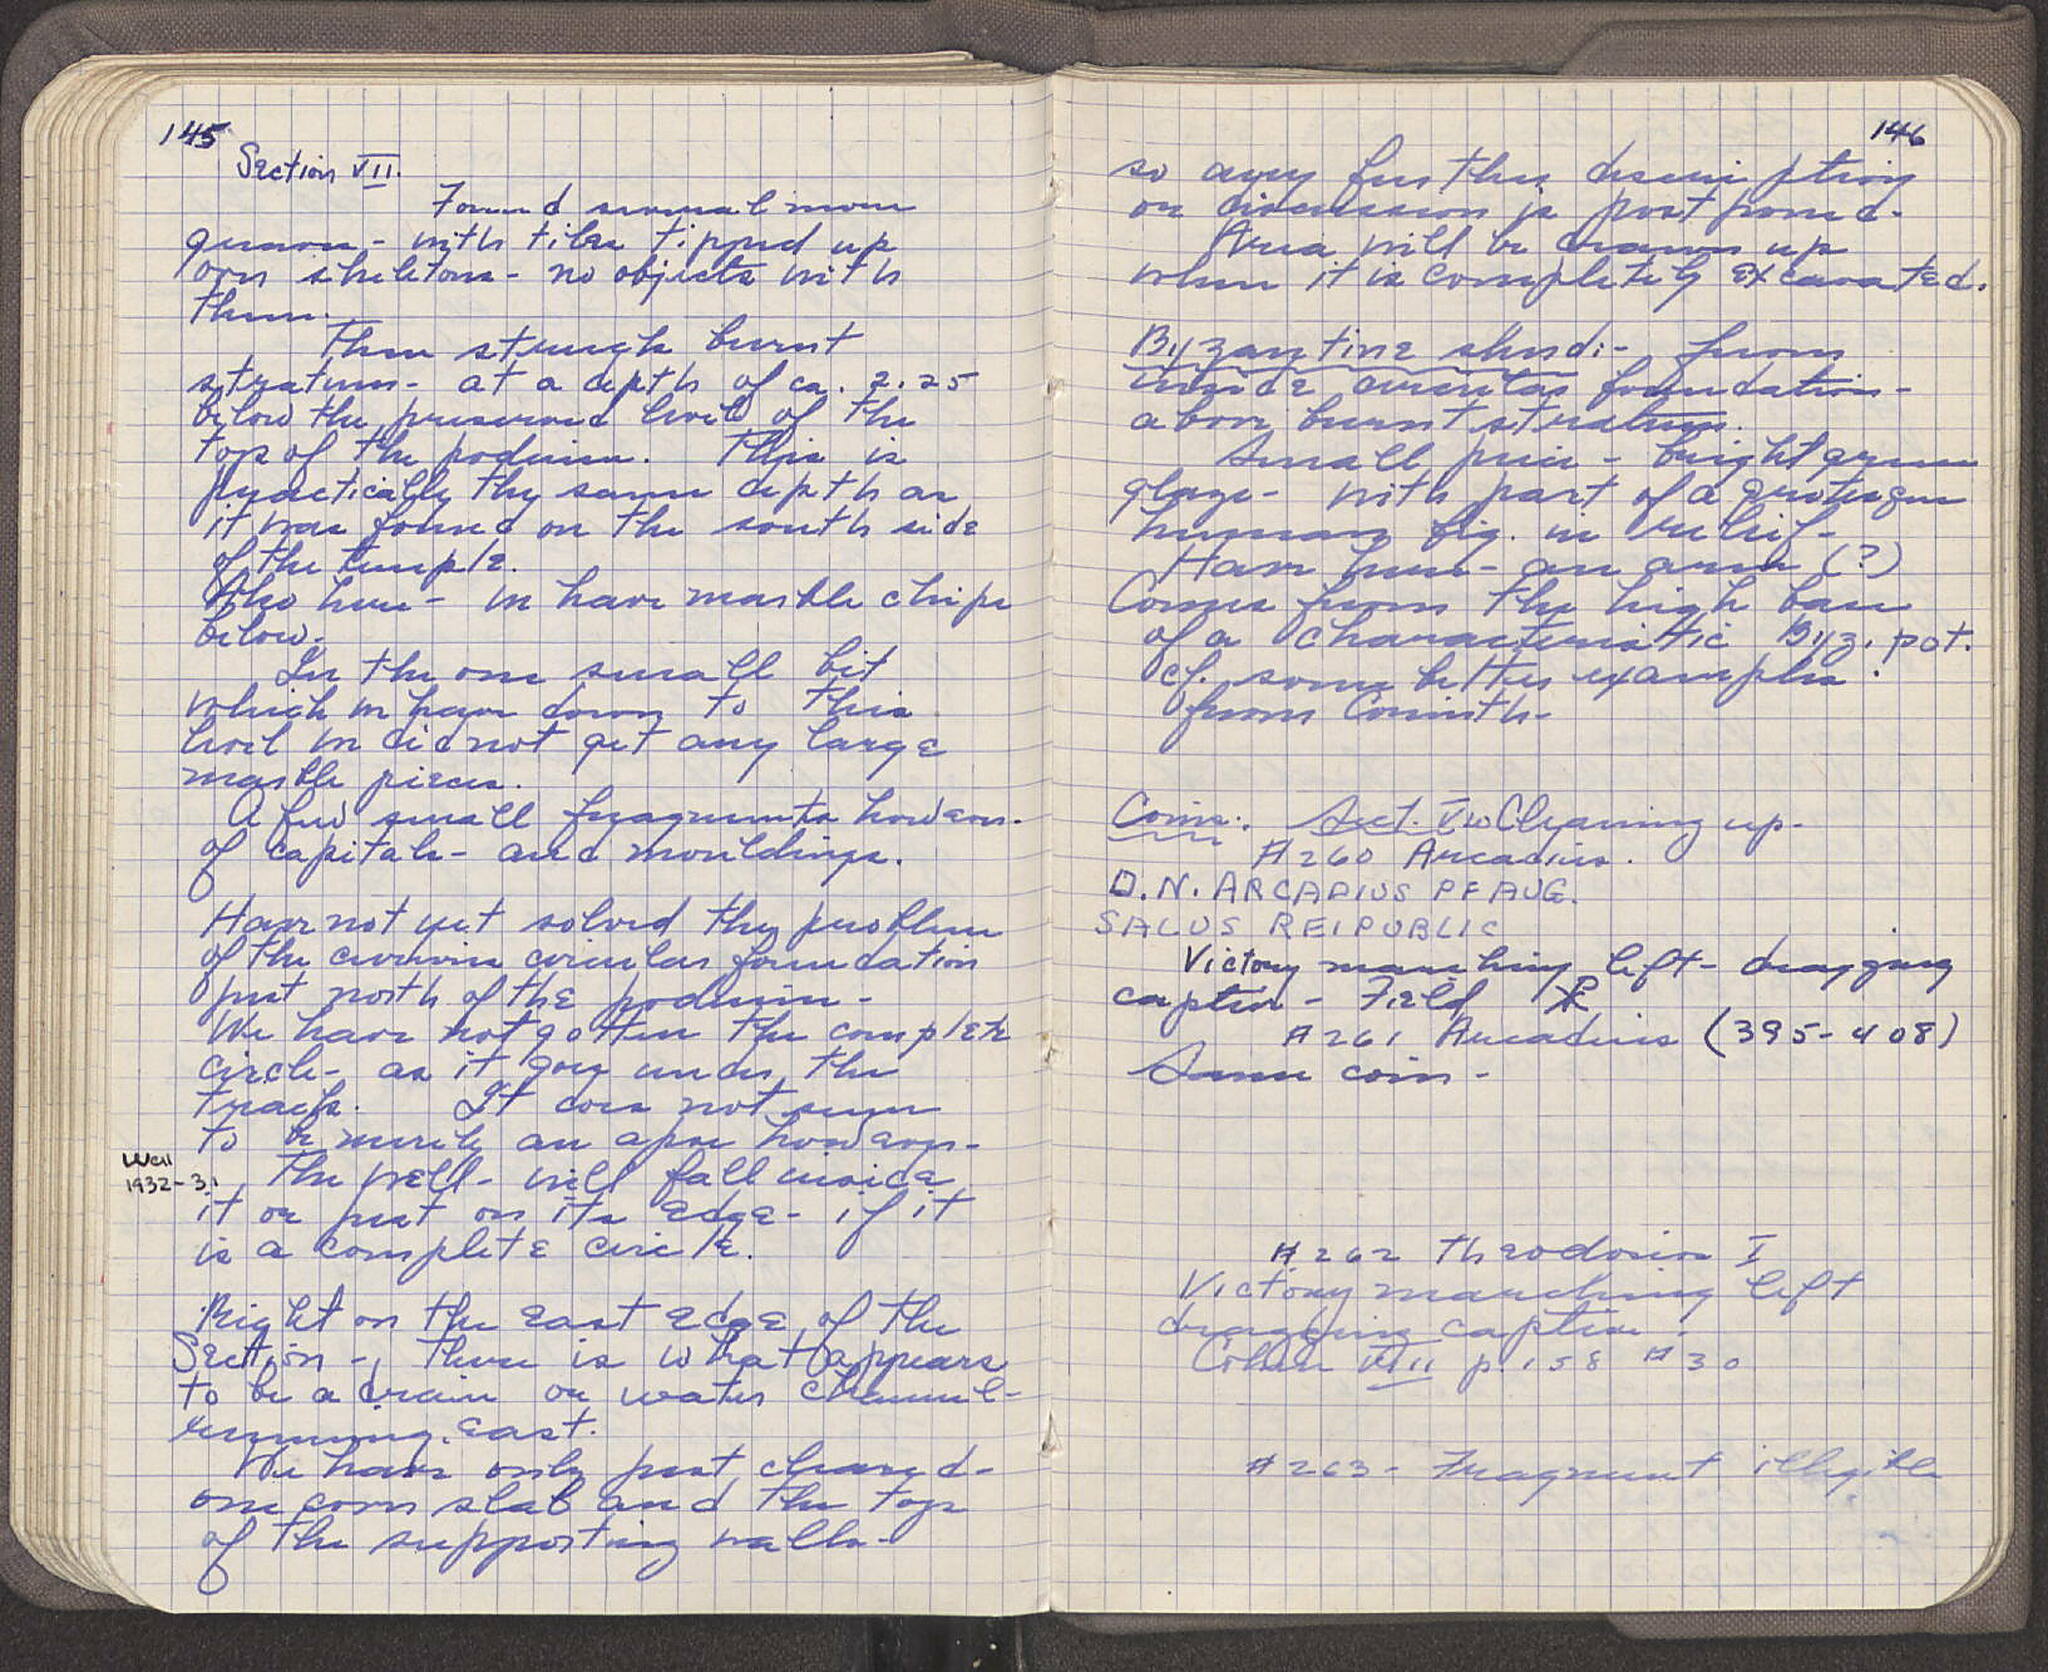 145
Section VII.
Found several more
graves - with tiles tipped up
over skeletons - no objects with
them.
Then struck burnt
stratum - at a depth of ca. 2.25
below the preserved level of the
top of the podium. This is
practically the same depth as
it was found on the south side
of the temple.
Also here - we have marble chips
below.
In the one small bit
which we have down to this
level we did not get any large
marble pieces.
A few small fragments however -
of capitals - and mouldings.
Have not yet solved the problem
of the circular foundation
just north of the podium -
We have not gotten the complete
circle - as it goes under the
track. It does not seem
to be merely an apse however -
Well
1932-3.
The well - will fall inside
it or just on its edge - if it
is a complete circle.
Right on the east edge of the
Section - there is what appears
to be a drain or water channel -
running east.
We have only just cleared -
one cover slab and the tops
of the supporting walls -
146
so any further description
or discussion is postponed -
Area will be drawn up
when it is completely excavated.
Byzantine sherd :- from
inside circular foundation -
above burnt stratum.
Small piece - bright green
glaze - with part of a grotesque
human fig. in relief -
Have here - an arm (?)
Comes from the high base
of a characteristic Byz. pot.
cf. some better examples
from Corinth -
Coins: Sect. VII Cleaning up -
#260 Arcadius.
D.N. ARCADIUS PF AUG.
SALUS REIPUBLIC
Victory marching left - dragging
captive - Field ⳩
#261 Arcadius (395-408)
Same coin -
#262 Theodosius I
Victory marching left
dragging captive -
Cohen VIII p. 158 #30
#263 - Fragment illegible